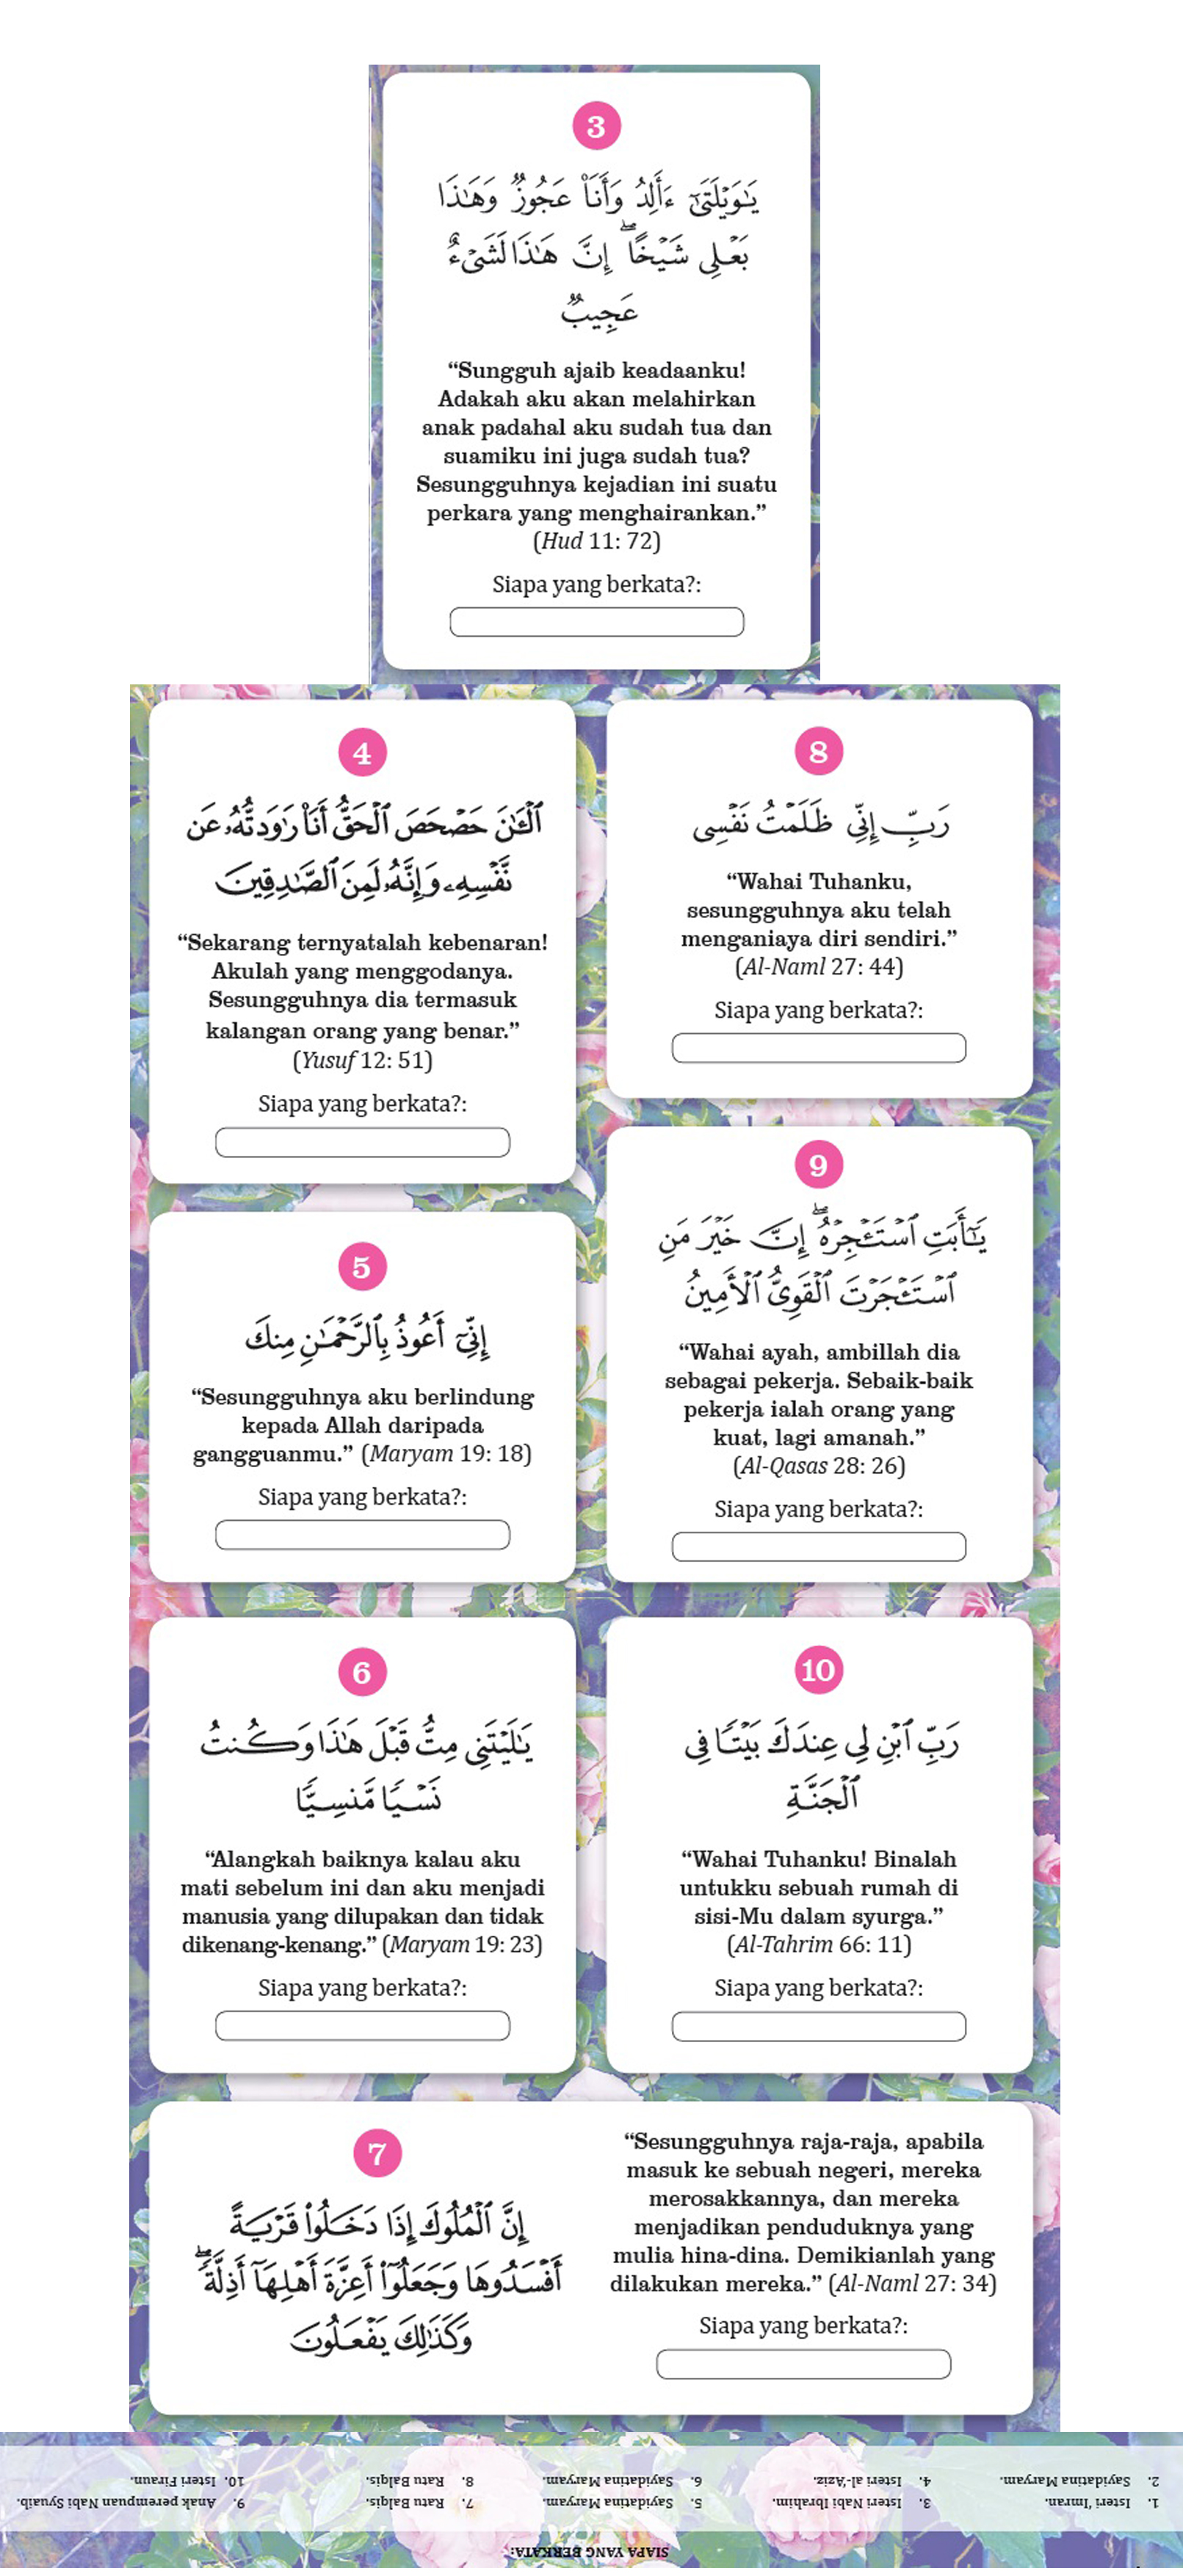 3
يَـٰوَيْلَتَىٰٓ ءَأَلِدُ وَأَنَا۠ عَجُوزٌ وَهَـٰذَا
بَعْلِى شَيْخًا ۖ إِنَّ هَـٰذَا لَشَىْءٌ
عَجِيبٌ
“Sungguh ajaib keadaanku!
Adakah aku akan melahirkan
anak padahal aku sudah tua dan
suamiku ini juga sudah tua?
Sesungguhnya kejadian ini suatu
perkara yang menghairankan.”
(Hud 11: 72)
Siapa yang berkata?:
4
ٱلْـَٔـٰنَ حَصْحَصَ ٱلْحَقُّ أَنَا۠ رَٰوَدتُّهُۥ عَن
نَّفْسِهِۦ وَإِنَّهُۥ لَمِنَ ٱلصَّـٰدِقِينَ
“Sekarang ternyatalah kebenaran!
Akulah yang menggodanya.
Sesungguhnya dia termasuk
kalangan orang yang benar.”
(Yusuf 12: 51)
Siapa yang berkata?:
5
إِنِّىٓ أَعُوذُ بِٱلرَّحْمَـٰنِ مِنكَ
“Sesungguhnya aku berlindung
kepada Allah daripada
gangguanmu.” (Maryam 19: 18)
Siapa yang berkata?:
6
يَـٰلَيْتَنِى مِتُّ قَبْلَ هَـٰذَا وَكُنتُ
نَسْيًا مَّنسِيًّا
“Alangkah baiknya kalau aku
mati sebelum ini dan aku menjadi
manusia yang dilupakan dan tidak
dikenang-kenang.” (Maryam 19: 23)
Siapa yang berkata?:
8
رَبِّ إِنِّى ظَلَمْتُ نَفْسِى
“Wahai Tuhanku,
sesungguhnya aku telah
menganiaya diri sendiri.”
(Al-Naml 27: 44)
Siapa yang berkata?:
9
يَـٰٓأَبَتِ ٱسْتَـْٔجِرْهُ ۖ إِنَّ خَيْرَ مَنِ
ٱسْتَـْٔجَرْتَ ٱلْقَوِىُّ ٱلْأَمِينُ
“Wahai ayah, ambillah dia
sebagai pekerja. Sebaik-baik
pekerja ialah orang yang
kuat, lagi amanah.”
(Al-Qasas 28: 26)
Siapa yang berkata?:
10
رَبِّ ٱبْنِ لِى عِندَكَ بَيْتًا فِى
ٱلْجَنَّةِ
“Wahai Tuhanku! Binalah
untukku sebuah rumah di
sisi-Mu dalam syurga.”
(Al-Tahrim 66: 11)
Siapa yang berkata?:
7
إِنَّ ٱلْمُلُوكَ إِذَا دَخَلُوا۟ قَرْيَةً
أَفْسَدُوهَا وَجَعَلُوٓا۟ أَعِزَّةَ أَهْلِهَآ أَذِلَّةً ۖ
وَكَذَٰلِكَ يَفْعَلُونَ
“Sesungguhnya raja-raja, apabila
masuk ke sebuah negeri, mereka
merosakkannya, dan mereka
menjadikan penduduknya yang
mulia hina-dina. Demikianlah yang
dilakukan mereka.” (Al-Naml 27: 34)
Siapa yang berkata?:
SIAPA YANG BERKATA:
1. Isteri ‘Imran.
2. Sayidatina Maryam.
3. Isteri Nabi Ibrahim.
4. Isteri al-Aziz.
5. Sayidatina Maryam.
6. Sayidatina Maryam.
7. Ratu Balqis.
8. Ratu Balqis.
9. Anak perempuan Nabi Syuaib.
10. Isteri Firaun.